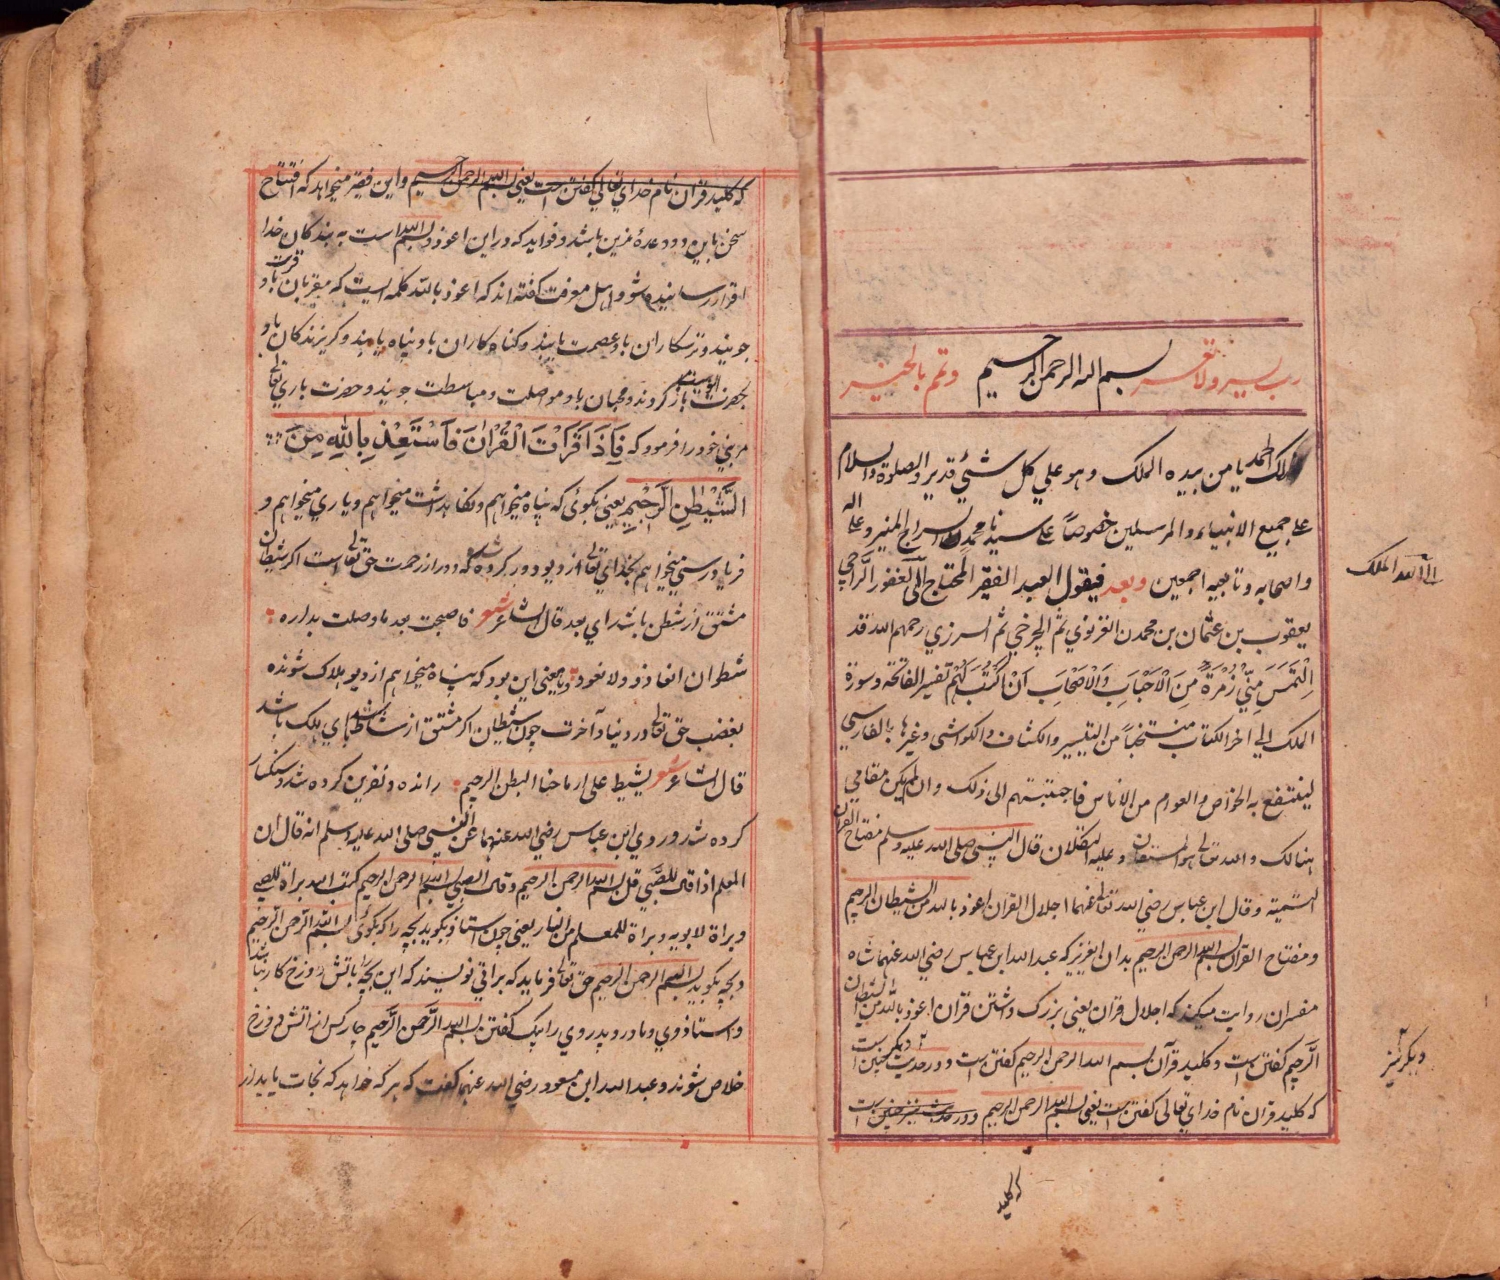 رب یسر ولا تعسر بسم الله الرحمن الرحیم وتمم بالخیر
لک الحمد یا من بیده الملک وهو علی کل شئی قدیر والصلوة والسلام
علی جمیع الانبیاء والمرسلین خصوصاً علی سیدنا محمد السراج المنیر وعلی اله
واصحابه وتابعیه اجمعین وبعد فیقول العبد الفقیر المحتاج الی الغفور الراجی
یعقوب بن عثمان بن محمد الغزنوی ثم الچرخی ثم السرزی رحمهم الله قد
اِلْتَمَسَ مِنِّی زُمْرَةٌ مِنَ الْاَحْبَابِ وَالْاَصْحَابِ اَنْ اَکْتُبَ لَهُمْ تفسیر الفاتحة وسورة
الملک الی اخر الکتاب منتخباً من التیسیر والکشاف والکواشی وغیرها بالفارسی
لینتفع به الخواص والعوام من الاناس فاجبتهم الی ذلک وان لم یکن مقامی
هنالک والله تعالی هو المستعان وعلیه التکلان قال النبی صلی الله علیه وسلم مفتاح القران
التسمیة وقال ابن عباس رضی الله تعالی عنهما اجلال القران اعوذ بالله من الشیطان الرجیم
ومفتاح القران بسم الله الرحمن الرحیم بدان ای عزیز که عبد الله ابن عباس رضی الله عنهما شاه
مفسران روایت میکند که اجلال قران یعنی بزرک داشتن قران اعوذ بالله من الشیطان
الرجیم کفتن است وکلید قرآن بسم الله الرحمن الرحیم کفتن است ودر حدیث دیکر چنین است
که کلید قران نام خدای تعالی کفتن است یعنی بسم الله الرحمن الرحیم
دیکر نیز
که کلید
که کلید قران نام خدای تعالی کفتن است یعنی بسم الله الرحمن الرحیم واین فقیر میخواهد که افتتاح
سخن باین دو دعاء مزین باشد وفواید که در این اعوذ وبسم الله است به بندکان خدا
رسانیده شود اهل معرفت کفته اند که اعوذ بالله کلمه ایست که مقربان باو قربت
جویند وترسکاران باو عصمت یابند وکناه کاران باو پناه یابند وکریزندکان باو
بحضرت باز کردند ومحبان باو مواصلت ومباسطت جویند وحضرت باری تعالی
مر نبی خود را فرمود که فَاِذَا قَرَاْتَ الْقُرْاٰنَ فَاسْتَعِذْ بِاللهِ مِنَ
الشَّیْطٰنِ الرَّجِیْمِ یعنی بکوئی که پناه میخواهم ونکاهداشت میخواهم ویاری میخواهم و
فریاد رسی میخواهم بخدای تعالی از دیو دور کرده شده که دور از رحمت حق تعالی است اکر شیطان
مشتق از شطن باشد ای بعد قال الشاعر شعر فاصبحت بعد ما وصلت بداره
وبا معنی این بود که پناه میخواهم از دیو هلاک شونده
بغضب حق تعالی در دنیا وآخرت چون شیطان اکر مشتق از شاط باشد ای هلک باشد
قال الشاعر شعر رانده ونفرین کرده شد وسنکسار
کرده شد وروی ابن عباس رضی الله عنهما عن النبی صلی الله علیه وسلم انه قال ان
المعلم اذا قال للصبی قل بسم الله الرحمن الرحیم وقال الصبی بسم الله الرحمن الرحیم کتب الله براة للصبی
وبراة لابویه وبراة للمعلم من النار یعنی چون استاذ بکوید بچه را که بکوئی بسم الله الرحمن الرحیم
وبچه بکوید بسم الله الرحمن الرحیم حق تعالی فرماید که براتی نویسند که این بچه باتش دوزخ کار نباشد
واستاذ وی ومادر وپدر وی را بیک کفتن بسم الله الرحمن الرحیم چار کس از اتش دوزخ
خلاص شوند وعبد الله ابن مسعود رضی الله عنهما کفت که هر که خواهد که نجات یابد از